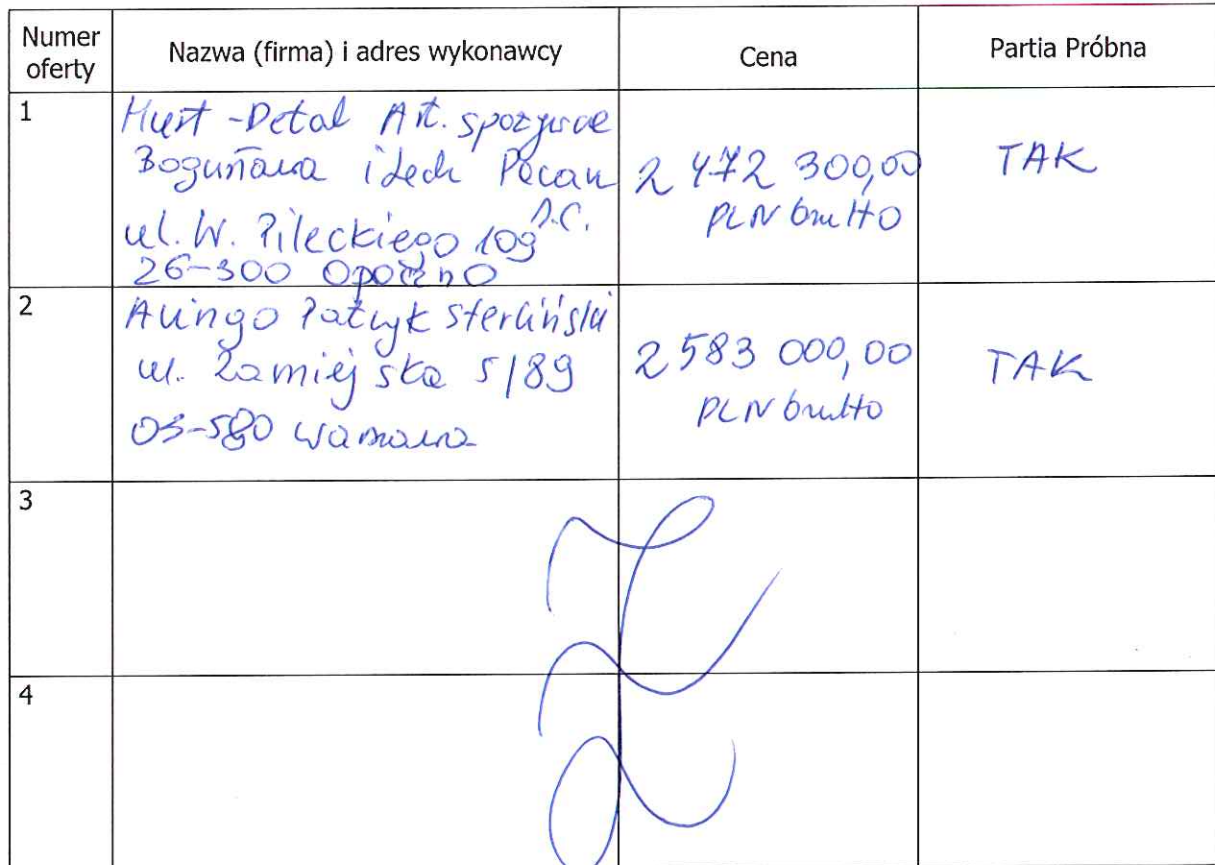 Numer oferty
Nazwa (firma) i adres wykonawcy
Cena
Partia Próbna
1
Hurt-Detal Art. spożywcze
Bogusława i Lech Pacan
s.c.
ul. W. Pileckiego 109
26-300 Opoczno
2 472 300,00
PLN brutto
TAK
2
Alingo Patryk Sterliński
ul. Zamiejska 5/89
03-580 Warszawa
2 583 000,00
PLN brutto
TAK
3
4